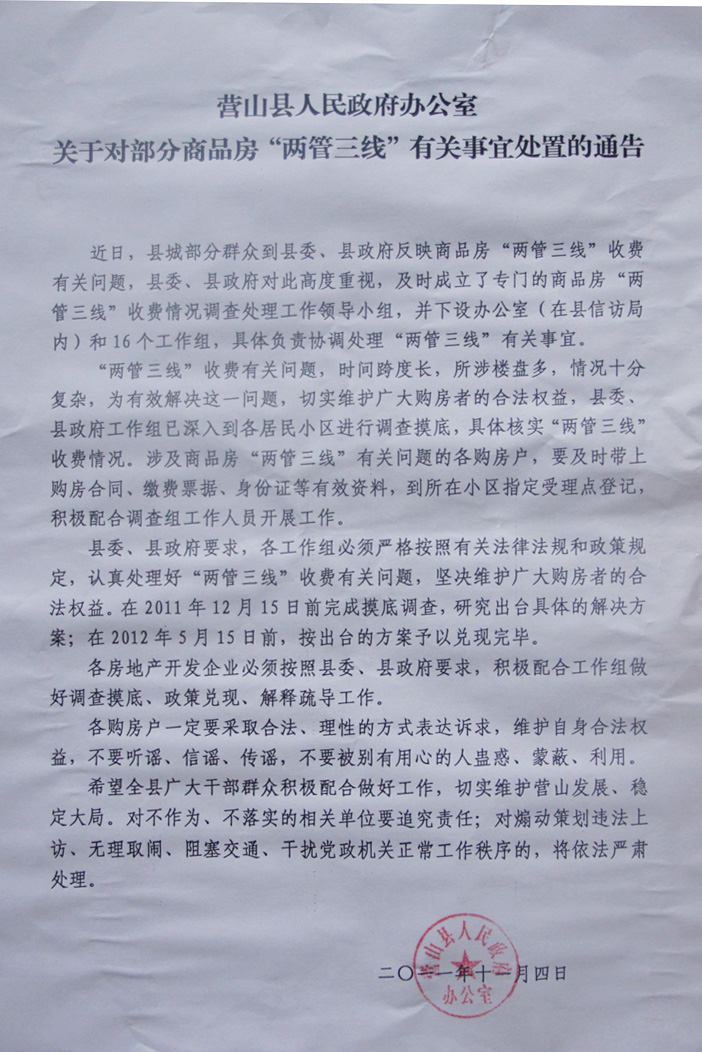 营山县人民政府办公室
关于对部分商品房“两管三线”有关事宜处置的通告
近日，县城部分群众到县委、县政府反映商品房“两管三线”收费
有关问题，县委、县政府对此高度重视，及时成立了专门的商品房“两
管三线”收费情况调查处理工作领导小组，并下设办公室（在县信访局
内）和16个工作组，具体负责协调处理“两管三线”有关事宜。
“两管三线”收费有关问题，时间跨度长，所涉楼盘多，情况十分
复杂，为有效解决这一问题，切实维护广大购房者的合法权益，县委、
县政府工作组已深入到各居民小区进行调查摸底，具体核实“两管三线”
收费情况。涉及商品房“两管三线”有关问题的各购房户，要及时带上
购房合同、缴费票据、身份证等有效资料，到所在小区指定受理点登记，
积极配合调查组工作人员开展工作。
县委、县政府要求，各工作组必须严格按照有关法律法规和政策规
定，认真处理好“两管三线”收费有关问题，坚决维护广大购房者的合
法权益。在2011年12月15日前完成摸底调查，研究出台具体的解决方
案；在2012年5月15日前，按出台的方案予以兑现完毕。
各房地产开发企业必须按照县委、县政府要求，积极配合工作组做
好调查摸底、政策兑现、解释疏导工作。
各购房户一定要采取合法、理性的方式表达诉求，维护自身合法权
益，不要听谣、信谣、传谣，不要被别有用心的人蛊惑、蒙蔽、利用。
希望全县广大干部群众积极配合做好工作，切实维护营山发展、稳
定大局。对不作为、不落实的相关单位要追究责任；对煽动策划违法上
访、无理取闹、阻塞交通、干扰党政机关正常工作秩序的，将依法严肃
处理。
二〇一一年十一月四日
营山县人民政府
办公室